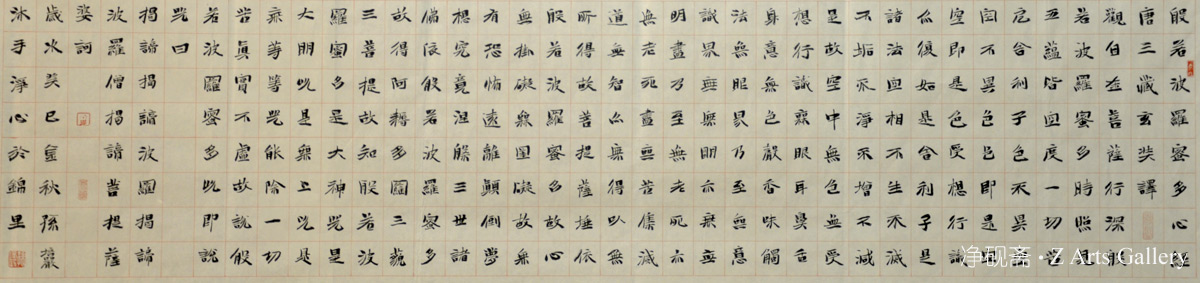 般若波羅蜜多心經
唐三藏玄奘譯
觀自在菩薩行深般
若波羅蜜多時照見
五蘊皆空度一切苦
厄舍利子色不異空
空不異色色即是空
空即是色受想行識
亦復如是舍利子是
諸法空相不生不滅
不垢不淨不增不減
是故空中無色無受
想行識無眼耳鼻舌
身意無色聲香味觸
法無眼界乃至無意
識界無無明亦無無
明盡乃至無老死亦
無老死盡無苦集滅
道無智亦無得以無
所得故菩提薩埵依
般若波羅蜜多故心
無掛礙無罣礙故無
有恐怖遠離顛倒夢
想究竟涅槃三世諸
佛依般若波羅蜜多
故得阿耨多羅三藐
三菩提故知般若波
羅蜜多是大神咒是
大明咒是無上咒是
無等等咒能除一切
苦真實不虛故說般
若波羅蜜多咒即說
咒曰
揭諦揭諦波羅揭諦
波羅僧揭諦菩提薩
婆訶
歲次癸巳皇秋孫
沐手淨心於錦里
净砚斋·Z Arts Gallery